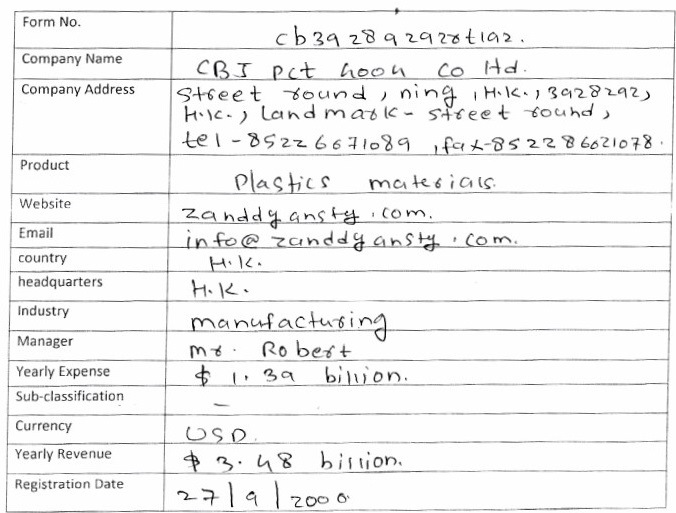 Form No. cb392892928t192.
Company Name CBJ pct hooh co ltd.
Company Address street round, ning, H.K., 3928292,
H.K., Landmark - street round,
tel - 85226671089, fax-85228 6621078.
Product Plastics materials.
Website zanddyansty.com.
Email info@zanddyansty.com.
country H.K.
headquarters H.K.
Industry manufacturing
Manager mr. Robert
Yearly Expense $ 1.39 billion.
Sub-classification –
Currency USD.
Yearly Revenue $ 3.48 billion.
Registration Date 27/9/2000